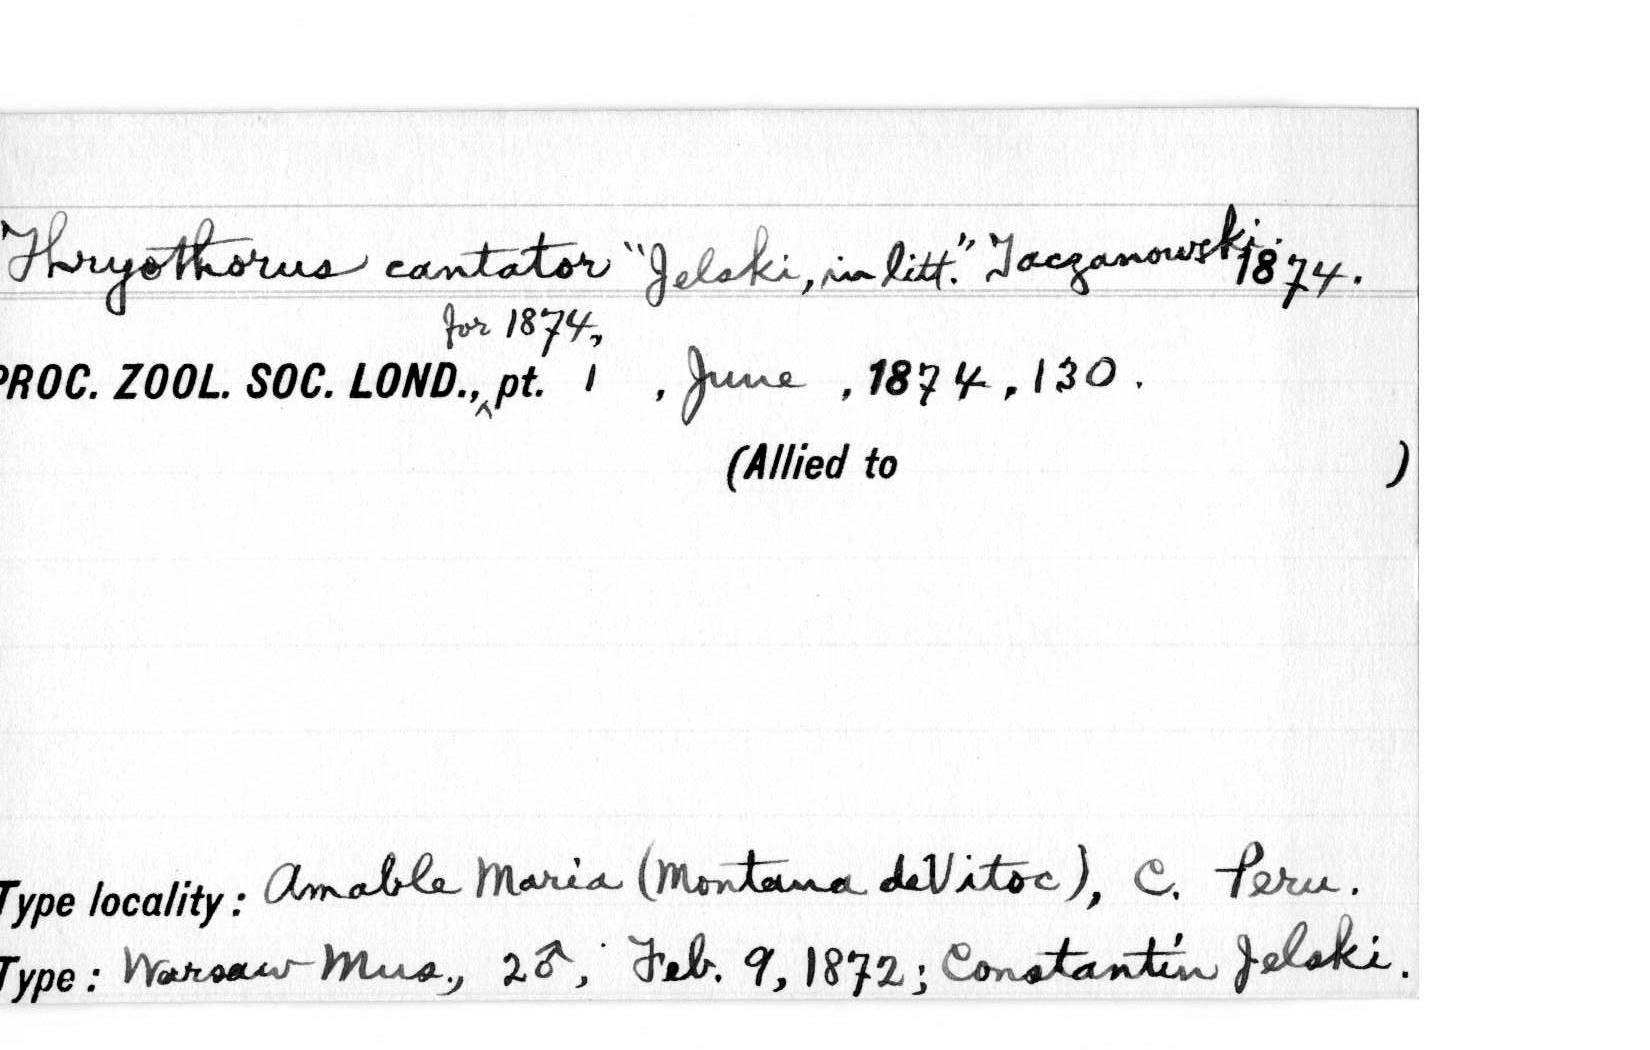 Thryothorus cantator "Jelski, in litt." Taczanowski 1874.
for 1874,
PROC. ZOOL. SOC. LOND., ^ pt. 1 , June , 1874 , 130 .
(Allied to )
Type locality : Amable Maria (Montana de Vitoc), C. Peru.
Type : Warsaw Mus., 2♂, Feb. 9, 1872; Constantín Jelski.